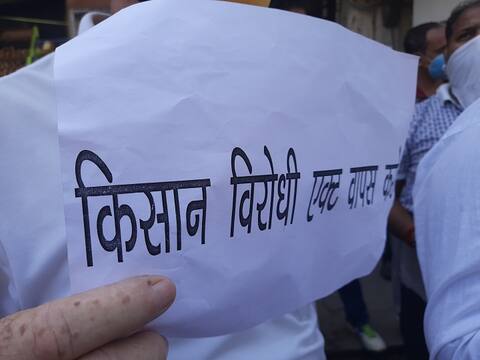 किसान विरोधी एक्ट वापस